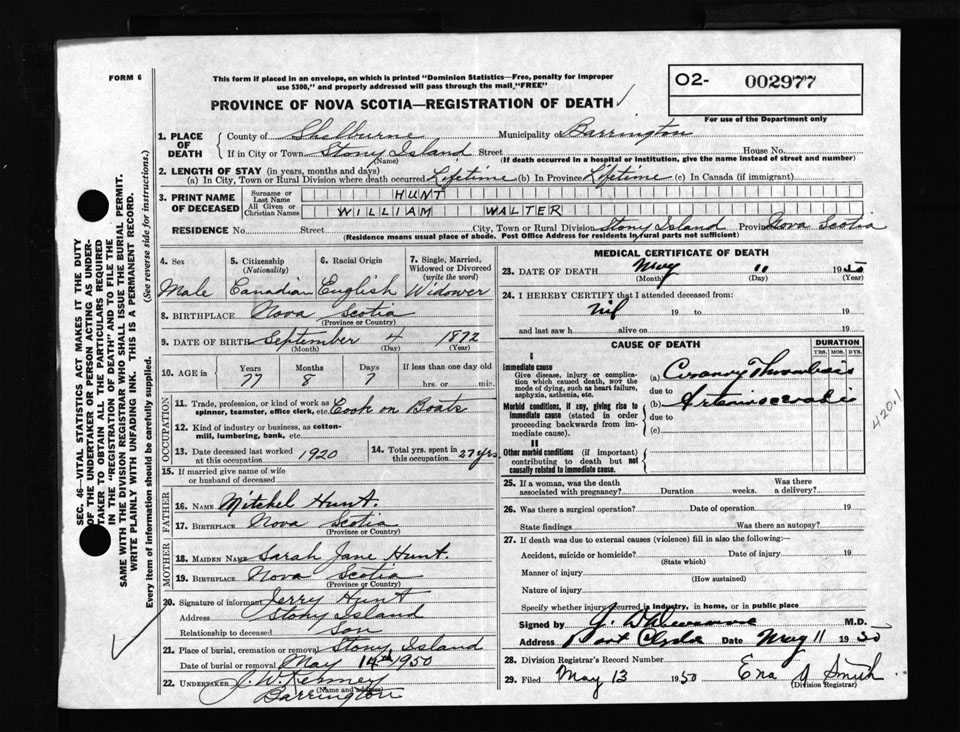 FORM 6
This form if placed in an envelope, on which is printed "Dominion Statistics—Free, penalty for improper
use $300," and properly addressed will pass through the mail, "FREE"
O2- 002977
For use of the Department only
PROVINCE OF NOVA SCOTIA—REGISTRATION OF DEATH
1. PLACE OF DEATH County of Shelburne Municipality of Barrington
If in City or Town Stony Island Street House No.
(Name) (If death occurred in a hospital or institution, give the name instead of street and number)
2. LENGTH OF STAY (in years, months and days)
(a) In City, Town or Rural Division where death occurred Lifetime (b) In Province Lifetime (c) In Canada (if immigrant)
3. PRINT NAME OF DECEASED Surname or Last Name HUNT
All Given or Christian Names WILLIAM WALTER
RESIDENCE No. Street City, Town or Rural Division Stony Island Province Nova Scotia
(Residence means usual place of abode. Post Office Address for residents in rural parts not sufficient)
4. Sex 5. Citizenship (Nationality) 6. Racial Origin 7. Single, Married, Widowed or Divorced (write the word)
Male Canadian English Widower
8. BIRTHPLACE Nova Scotia
(Province or Country)
9. DATE OF BIRTH September 4 1872
(Month) (Day) (Year)
10. AGE in Years Months Days If less than one day old
77 8 7 hrs. or min.
OCCUPATION
11. Trade, profession, or kind of work as
spinner, teamster, office clerk, etc. Cook on Boats
12. Kind of industry or business, as cotton-
mill, lumbering, bank, etc.
13. Date deceased last worked at this occupation 1920 14. Total yrs. spent in this occupation 27 yrs.
15. If married give name of wife
or husband of deceased
FATHER
16. NAME Mitchel Hunt.
17. BIRTHPLACE Nova Scotia
(Province or Country)
MOTHER
18. MAIDEN NAME Sarah Jane Hunt.
19. BIRTHPLACE Nova Scotia
(Province or Country)
20. Signature of informant Jerry Hunt
Address Stony Island
Relationship to deceased Son
21. Place of burial, cremation or removal Stony Island
Date of burial or removal May 14th 1950
22. UNDERTAKER J. W. Kenney
(Name and Address)
Barrington
MEDICAL CERTIFICATE OF DEATH
23. DATE OF DEATH May 11 1950
(Month) (Day) (Year)
24. I HEREBY CERTIFY that I attended deceased from:
nil 19 to 19
and last saw h alive on 19
CAUSE OF DEATH DURATION
YRS. MOS. DYS.
I
Immediate cause
Give disease, injury or complica-
tion which caused death, NOT the
mode of dying, such as heart failure,
asphyxia, asthenia, etc.
(a) Coronary Thrombosis
due to
Morbid conditions, if any, giving rise to
immediate cause (stated in order
proceeding backwards from im-
mediate cause).
(b) Arteriosclerosis
due to
(c)
420.1
II
Other morbid conditions (if important)
contributing to death but not
causally related to immediate cause.
25. If a woman, was the death associated with pregnancy? Duration weeks. Was there a delivery?
26. Was there a surgical operation? Date of operation 19
State findings Was there an autopsy?
27. If death was due to external causes (violence) fill in also the following:—
Accident, suicide or homicide? Date of injury 19
(State which)
Manner of injury
(How sustained)
Nature of injury
Specify whether injury occurred in industry, in home, or in public place
Signed by M.D.
Address Port Clyde Date May 11 1950
28. Division Registrar's Record Number
29. Filed May 13 1950 Smith
(Division Registrar)
SEC. 46—VITAL STATISTICS ACT MAKES IT THE DUTY
OF THE UNDERTAKER OR PERSON ACTING AS UNDER-
TAKER TO OBTAIN ALL THE PARTICULARS REQUIRED
IN THE "REGISTRATION OF DEATH" AND TO FILE THE
SAME WITH THE DIVISION REGISTRAR WHO SHALL ISSUE THE BURIAL PERMIT.
WRITE PLAINLY WITH UNFADING INK. THIS IS A PERMANENT RECORD.
Every item of information should be carefully supplied. (See reverse side for instructions.)